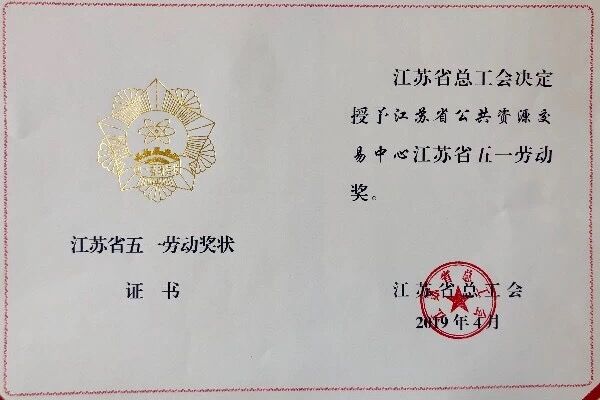 江苏省五一劳动奖状
证书
江苏省总工会决定
授予江苏省公共资源交
易中心江苏省五一劳动
奖。
江苏省总工会
2019年4月